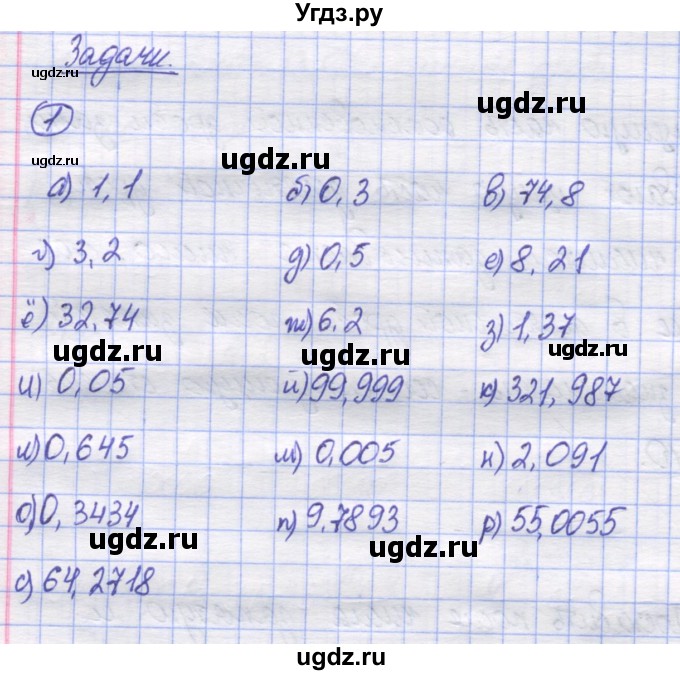 Угдз.ру
Задачи.
ugdz.ru
1
ugdz.ru
ugdz.ru
ugdz.ru
а) 1,1 б) 0,3 в) 74,8
г) 3,2 д) 0,5 е) 8,21
ё) 32,74 ж) 6,2 з) 1,37
ugdz.ru ugdz.ru ugdz.ru
и) 0,05 й) 99,999 к) 321,987
л) 0,645 м) 0,005 н) 2,091
о) 0,3434 п) 9,7893 р) 55,0055
ugdz.ru ugdz.ru
с) 64,2718
ugdz.ru